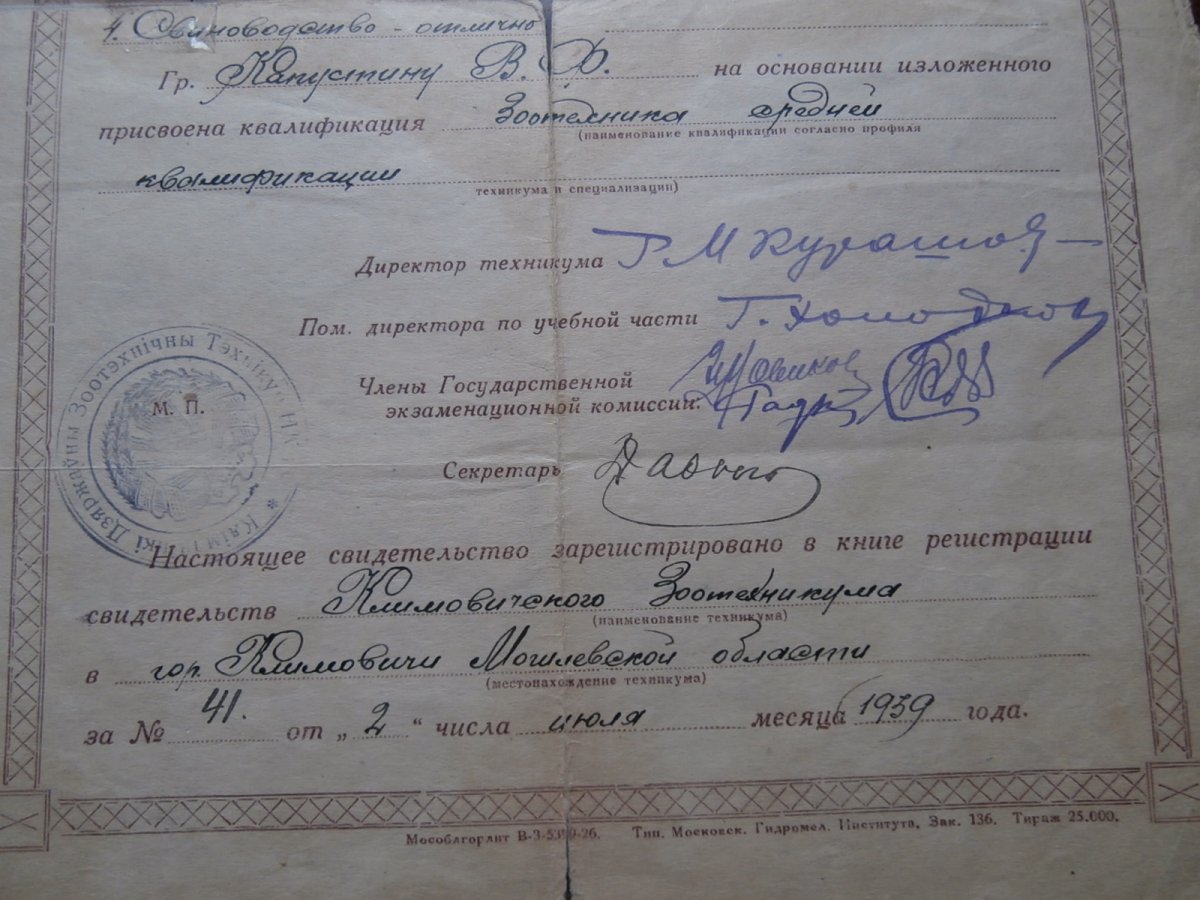 4. Свиноводство - отлично
Гр. Капустину В. Ф. на основании изложенного
присвоена квалификация Зоотехника средней
(наименование квалификации согласно профиля
квалификации
техникума и специализации)
Директор техникума
Пом. директора по учебной части Г. Холодков
Члены Государственной
экзаменационной комиссии: Новиков
Секретарь
Дзяржаўны Зоотэхнічны Тэхнікум
М. П.
Настоящее свидетельство зарегистрировано в книге регистрации
свидетельств Климовичского Зоотехникума
(наименование техникума)
в гор. Климовичи Могилевской области
(местонахождение техникума)
за № 41. от „ 2 “ числа июля месяца 1939 года.
Мособлгорлит Тип. Московск. Гидромел. Института, Зак. 136. Тираж 25.000.